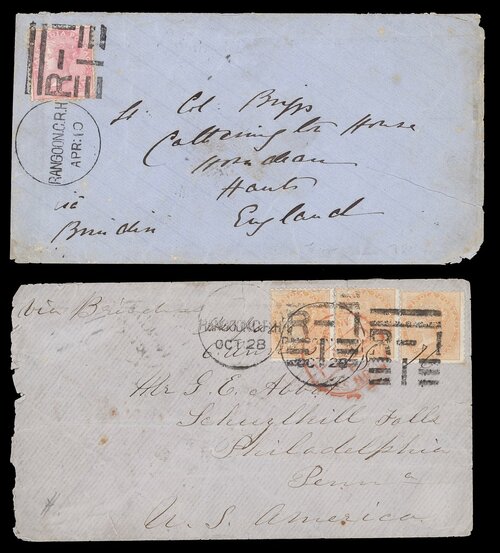 R-1
RANGOON.C.R.H
APR:10
Lt Col. Briggs
House
Horndean
Hants
England
via
Brindisi
via Brindisi
R-1
R-1
OCT 28
OCT 28
Mr G. E. Abbot
Schuylhill Falls
Philadelphia
Penna
U. S. America